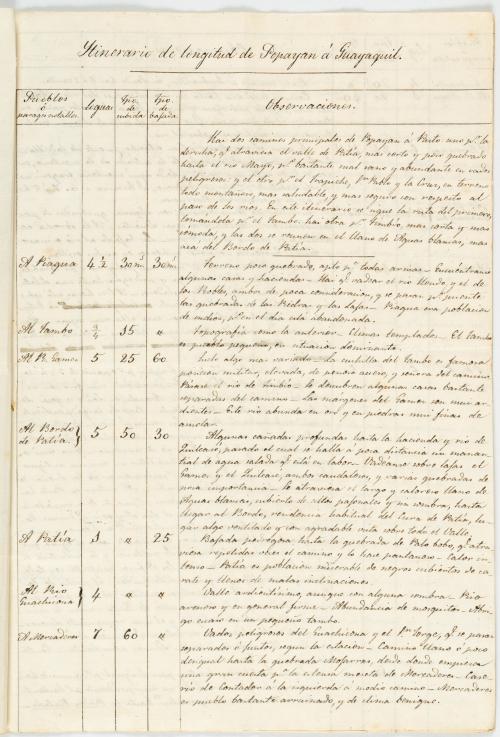 Itinerario de longitud de Popayan á Guayaquil.
Pueblos
ó
parages notables.
Leguas
Tpo.
de
subida
Tpo.
de
bajada
Observaciones.
Hai dos caminos principales de Popayan á Pasto uno pr. la
derecha, q.e atraviesa el valle de Patía, mas corto y poco quebrado
hasta el rio Mayo, pº bastante mal sano y abundante en vados
peligrosos y el otro pr. el Trapiche, Sn. Pablo y la Cruz, en terreno
todo montañoso, mas saludable, y mas seguro con respecto al
paso de los rios. En este itinerario se sigue la ruta del primero,
tomandola pr. el Tambo. hai otra pr. Timbio, mas corta y mas
cómoda, y las dos se reunen en el llano de Aguas blancas, mas
acá del Bordo de Patía.
A Piagua
4 ½
30 m.
30 m.
Terreno poco quebrado, apto pª todas armas _ Encuéntranse
algunas casas y haciendas _ Hai q.e vadear el rio Hondo, y el de
los Robles, ambos de poca consideracion, y se pasan pr. puente
las quebradas de las Piedras y las Lajas _ Piagua era poblacion
de indios, pº en el dia está abandonada.
Al Tambo
¾
15
"
Topografia como la anterior _ Clima templado _ El Tambo
es pueblo pequeño, en situacion dominante.
Al R. Esmes
5
25
60
Suelo algo mas variado _ La cuchilla del Tambo es famosa
posicion militar, elevada, de penoso acceso, y señora del camino.
Pásase el rio de Timbio _ Se descubren algunas casas bastante
separadas del camino _ Las margenes del Esmes son mui ar-
dientes _ Este rio abunda en oro y en piedras mui finas de
amolar
Al Bordo
de Patía
5
50
30
Algunas cañadas profundas hasta la hacienda y rio de
Quilcacé, pasado el cual se halla á poca distancia un manan-
tial de agua salada q.e está en labor _ Vadéanse sobre lajas el
Esmes y el Quilcacé, ambos caudalosos, y varias quebradas de
poca importancia _ Se atraviesa el largo y caloroso llano de
Aguas blancas, cubierto de altos pajonales y sin sombra, hasta
llegar al Bordo, residencia habitual del Cura de Patía, lu-
gar algo ventilado y con agradable vista sobre todo el Valle.
A Patía
3
"
25
Bajada pedregosa hasta la quebrada de Palo bobo, q.e atra-
viesa repetidas veces el camino y lo hace pantanoso _ Calor in-
tenso _ Patía es poblacion miserable de negros cubiertos de ca-
rate y llenos de malas inclinaciones.
Al Rio
Guachicono
4
"
"
Valle ardientísimo, aunque con alguna sombra _ Piso
arenoso y en general firme _ Abundancia de mosquitos _ Abri-
go escaso en un pequeño tambo.
A Mercaderes
7
60
"
Vados peligrosos del Guachicono y el Sn. Jorge, q.e se pasan
separados ó juntos, segun la estacion _ Camino llano ó poco
desigual hasta la quebrada Mojarras, desde donde empieza
una gran cuesta pª la estensa meseta de Mercaderes _ Case-
rio de Contador á la izquierda á medio camino _ Mercaderes
es pueblo bastante arruinado, y de clima benigno.